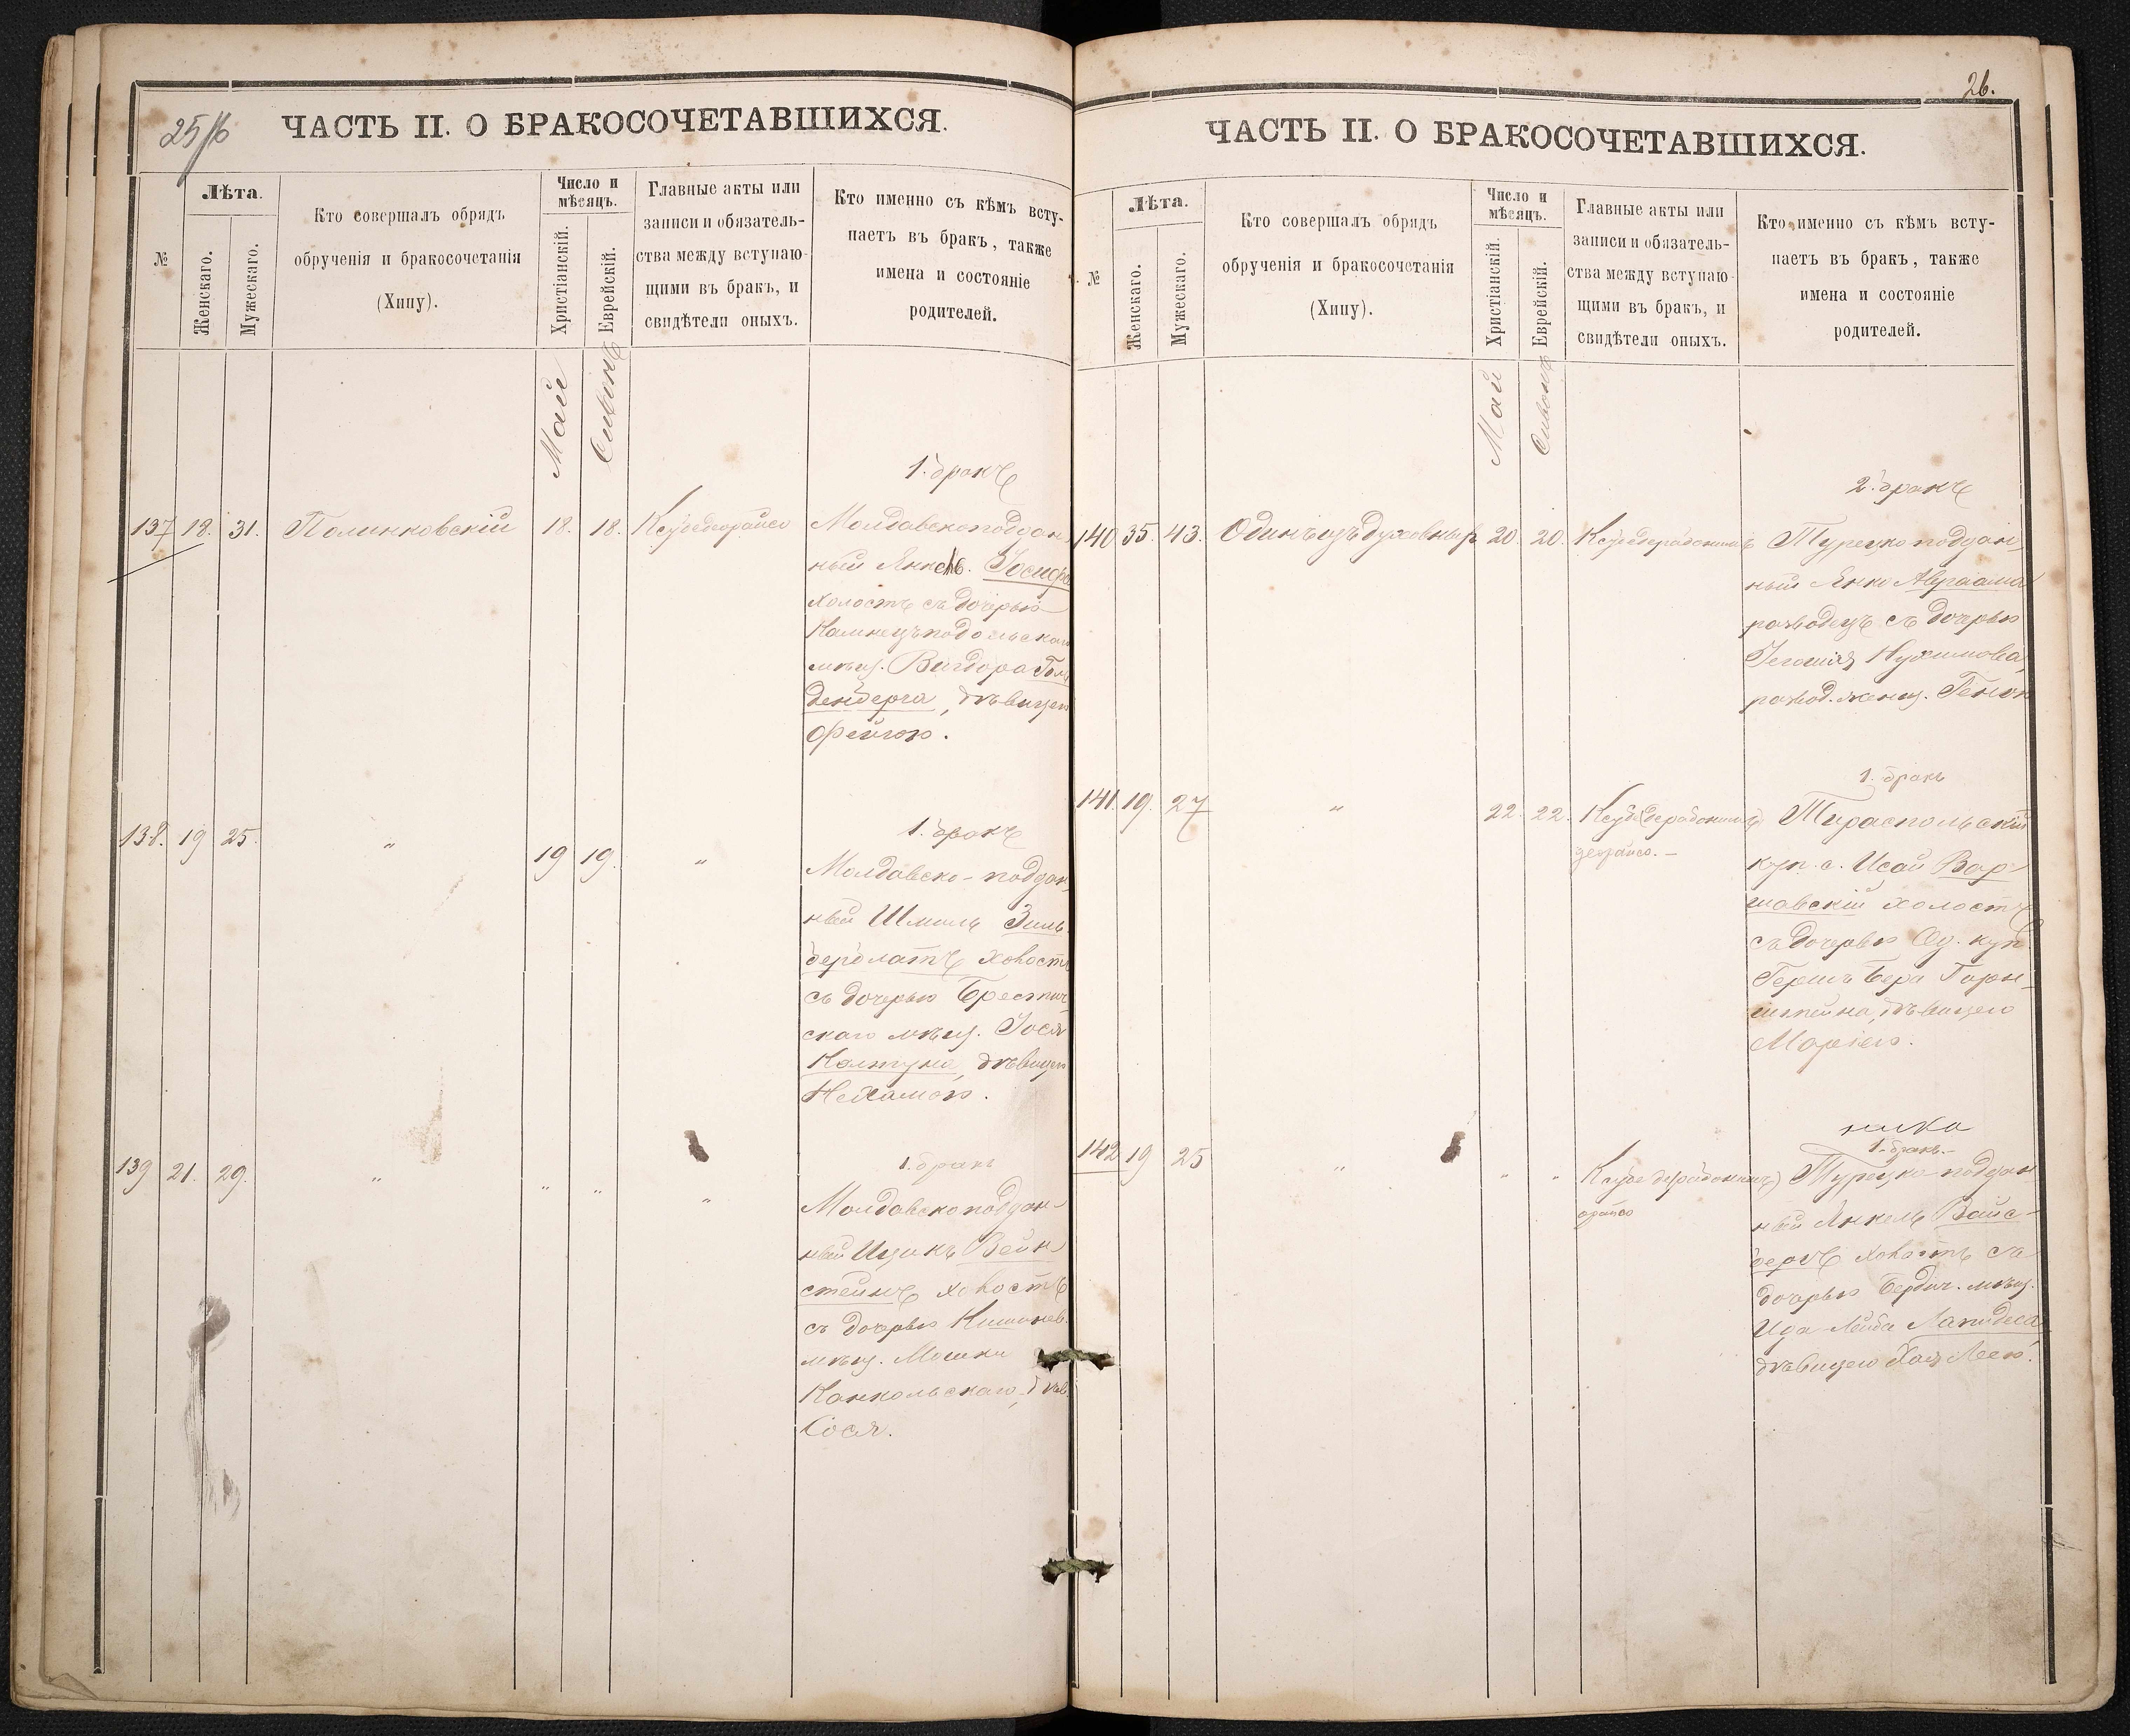 25/16
ЧАСТЬ II. О БРАКОСОЧЕТАВШИХСЯ.
№
Лѣта.
Женскаго.
Мужескаго.
Кто совершалъ обрядъ
обрученія и бракосочетанія
(Хипу).
Число и
мѣсяцъ.
Христіанскій.
Еврейскій.
Главные акты или
записи и обязатель-
ства между вступаю-
щими въ бракъ, и
свидѣтели оныхъ.
Кто именно съ кѣмъ всту-
паетъ въ бракъ, также
имена и состояніе
родителей.
Май
Сивонъ
1. бракъ
137 18. 31. Полинковскій 18. 18. Молдавскоподдан
ный Янкель. Іосифа
холостъ съ дочерью
Каменецъподольскаго
мѣщ. Вигдора Голь
денберга, дѣвицею
Фейгою.
1. бракъ
138. 19 25. " 19 19. "
Молдавско-поддан-
ный Шмиль Зиль
берблатъ холостъ
съ дочерью Брестич
скаго мѣщ. Іося
Калтуна, дѣвицею
Нехамою.
1. бракъ
139 21. 29. " " " "
Молдавскоподдан-
ный Ицикъ Вейн
стейнъ холостъ
съ дочерью Кишинев.
мѣщ. Мошки
Канкольскаго, дѣв.
Сося.
26.
ЧАСТЬ II. О БРАКОСОЧЕТАВШИХСЯ.
№
Лѣта.
Женскаго.
Мужескаго.
Кто совершалъ обрядъ
обрученія и бракосочетанія
(Хипу).
Число и
мѣсяцъ.
Христіанскій.
Еврейскій.
Главные акты или
записи и обязатель-
ства между вступаю-
щими въ бракъ, и
свидѣтели оныхъ.
Кто именно съ кѣмъ всту-
паетъ въ бракъ, также
имена и состояніе
родителей.
Май
Сивонъ
2. бракъ
140 35. 43. Одинъ изъ духовныхъ 20. 20. Турецко поддан-
ный Янкю Авраама
разводецъ съ дочерью
Нухимова,
развод. женщ. Геньок
1. бракъ
141. 19. 27 " 22. 22. Тираспольскій
куп. с. Исай Вар-
шавскій холостъ
съ дочерью Од. куп.
Гершъ Бера Горн-
штейна, дѣвицею
Маріею.
1. бракъ.-
142 19 25 " " " Турецко-поддан
ный Янкель Вайс-
бергъ холостъ съ
дочерью Бердич. мѣщ.
Ицa-Лейба Лапидеса,
дѣвицею Хая Леею.